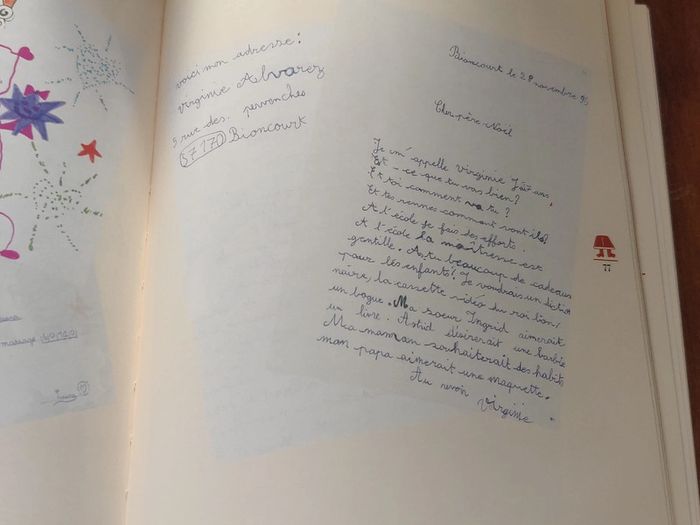 voici mon adresse:
virginie Alvarez
5 rue des. pervenches
57170 Bioncourt
Bioncourt le 28 novembre 95
Cher père-Noël
Je m'appelle virginie J'ai 7 ans,
Est-ce que tu vas bien?
Et toi comment va tu?
Et tes rennes comment vont ils?
A l'école je fais des efforts.
A l'école la maîtresse est
gentille. As tu beaucoup de cadeaux
pour les enfants? Je voudrais un diction
naire, la cassette vidéo du roi lion,
un bogue. Ma soeur Ingrid aimerait
un livre. Astrid désirerait une barbie
Ma maman souhaiterait des habits
mon papa aimerait une maquette.
Au revoir
Virginie
77
message